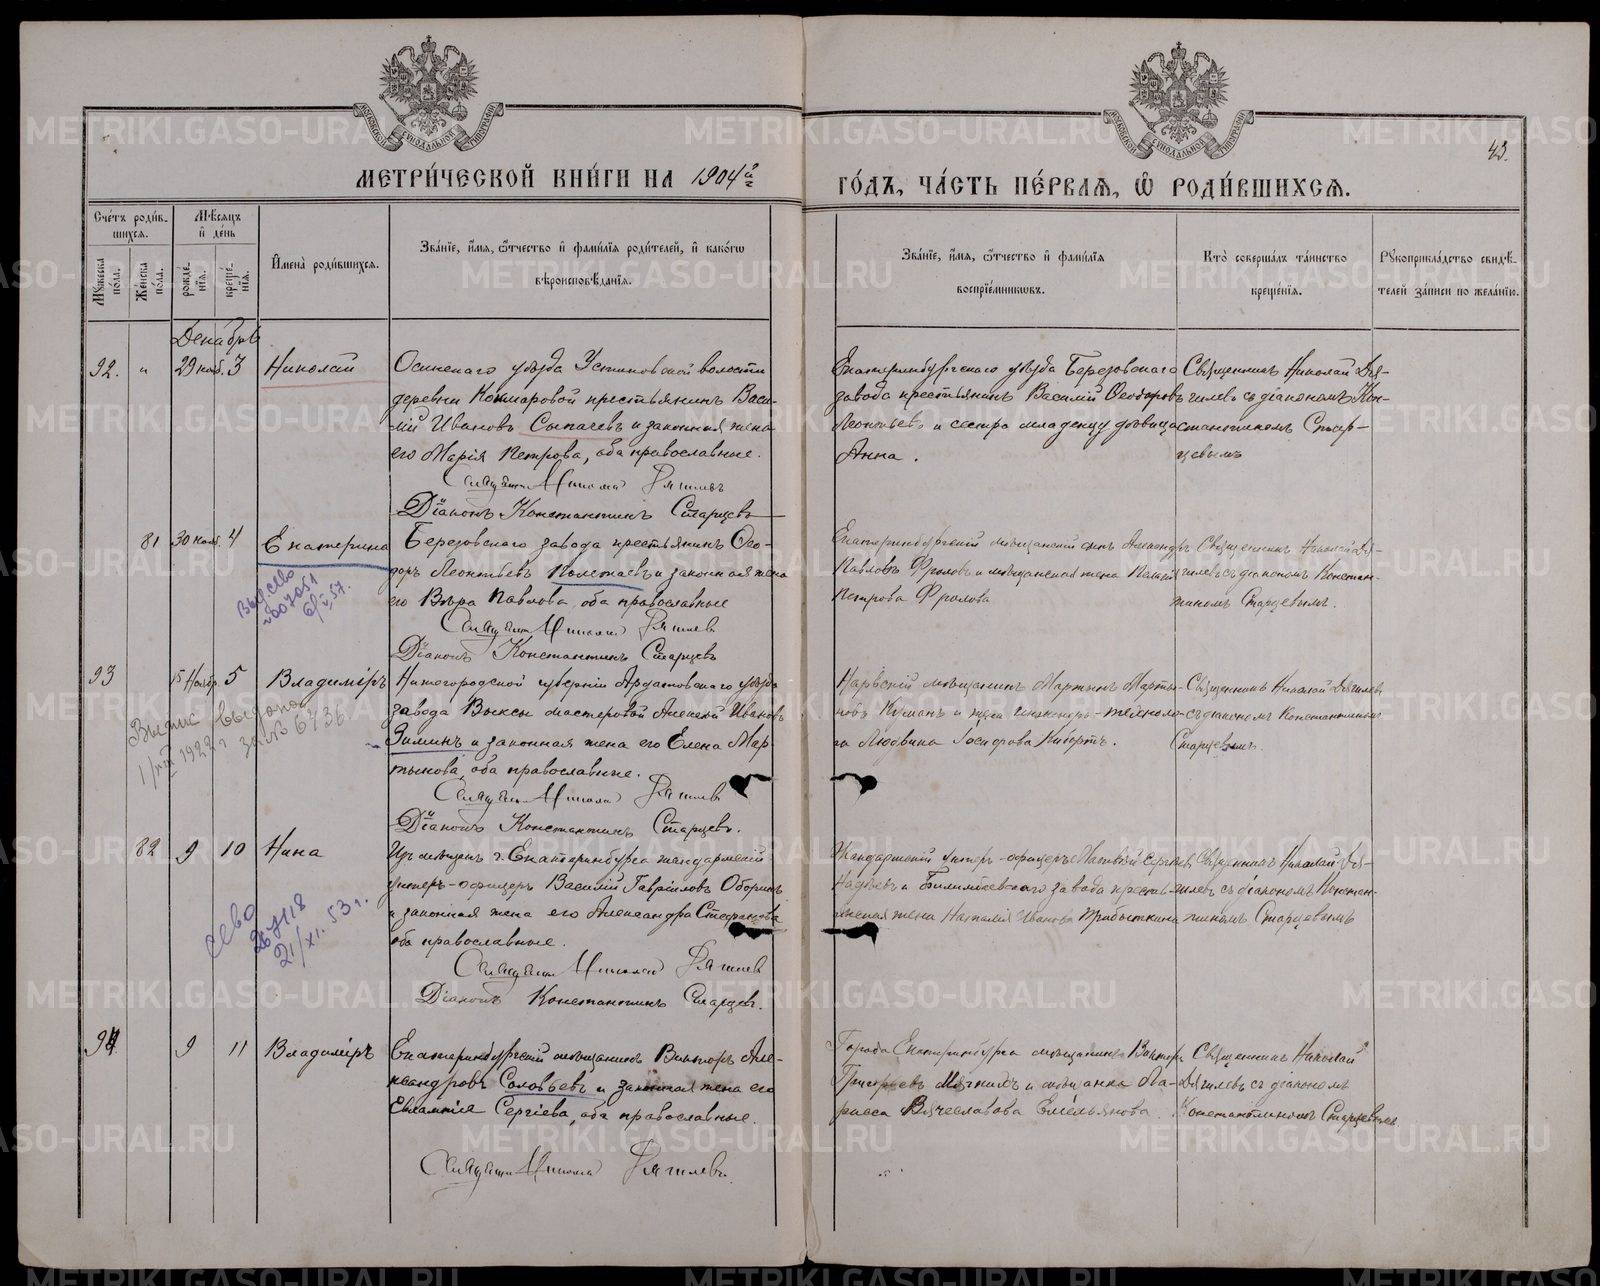 МОСКОВСКОЙ СУНОДАЛЬНОЙ ТИПОГРАФІИ
МОСКОВСКОЙ СУНОДАЛЬНОЙ ТИПОГРАФІИ
43.
МЕТРИ́ЧЕСКОЙ КНИ́ГИ НА 1904й
ГО́ДЪ, ЧА́СТЬ ПЕ́РВАѦ, Ѡ҆ РОДИ́ВШИХСѦ.
Сче́тъ роди́в-
шихсѧ.
Мꙋ́жеска по́ла.
Же́нска по́ла.
Мѣ́сѧцъ и҆ де́нь
рожде́-нїѧ.
креще́-нїѧ.
И҆мена̀ роди́вшихсѧ.
Зва́нїе, и҆́мѧ, ѻ҆́тчество и҆ фами́лїѧ роди́телей, и҆ како́гѡ
вѣроисповѣ́данїѧ.
Зва́нїе, и҆́мѧ, ѻ҆́тчество и҆ фами́лїѧ
воспрїе́мникѡвъ.
Кто̀ соверша́лъ та́инство
креще́нїѧ.
Рꙋкоприкла́дство свидѣ́-
телей за́писи по жела́нїю.
Декабрь
92. " 29 нояб. 3 Николай
Осинскаго уѣзда Устиновской волости
деревни Кошмаровой крестьянинъ Васи-
лій Ивановъ Сыпачевъ и законная жена
его Марія Петрова, оба православные.
Священн. Николай Дягилевъ
Діаконъ Константинъ Старцевъ
Екатеринбургскаго уѣзда Березовскаго
завода крестьянинъ Василій Ѳеодоровъ
Леонтьевъ и сестра младенцу дѣвица
Анна.
Священникъ Николай Дя-
гилевъ съ діакономъ Кон-
стантиномъ Стар-
цевымъ
81 30 нояб. 4 Екатерина
Березовскаго завода крестьянинъ Ѳео-
доръ Леонтьевъ Полетаевъ и законная жена
его Вѣра Павлова, оба православные
Священн. Николай Дягилевъ
Діаконъ Константинъ Старцевъ
Екатеринбургскій мѣщанскій сынъ Александръ
Павловъ Фроловъ и мѣщанская жена
Петрова Фролова
Священникъ Николай Дя-
гилевъ съ діакономъ Констан-
тиномъ Старцевымъ.
93 15 Ноябр. 5 Владиміръ
Нижегородской губерніи Ардатовскаго уѣзда
завода Выксы мастеровой Алексѣй Ивановъ
Зиминъ и законная жена его Елена Мар-
тынова, оба православные.
Священн. Николай Дягилевъ
Діаконъ Константинъ Старцевъ.
Выпис выдана
1922 г за № 6736
Нарвскій мѣщанинъ Мартынъ Марты-
новъ и жена инженеръ-техноло-
га Людвика
Священникъ Николай Дягилевъ
съ діакономъ Константиномъ
Старцевымъ.
82 9 10 Нина
Изъ мѣщанъ г. Екатеринбурга жандармскій
унтеръ-офицеръ Василій Гавриловъ Оборинъ
и законная жена его Александра Стефанова
оба православные.
Священн. Николай Дягилевъ
Діаконъ Константинъ Старцевъ.
21/XI. 53 г.
Жандармскій унтеръ-офицеръ Матвѣй Сергѣевъ
и Билимбаевскаго завода кресть-
янская жена Наталія Иванова
Священникъ Николай Дя-
гилевъ съ діакономъ Констан-
тиномъ Старцевымъ
94. 9 11 Владиміръ
Екатеринбургскій мѣщанинъ Викторъ Але-
ксандровъ Соловьевъ и законная жена его
Евлампія Сергіева, оба православные.
Священн. Николай Дягилевъ.
Города Екатеринбурга мѣщанинъ Викторъ
Григорьевъ и мѣщанка Ла-
риса Вячеславова Емельянова.
Священникъ Николай
Дягилевъ съ діакономъ
Константиномъ Старцевымъ
METRIKI.GASO-URAL.RU